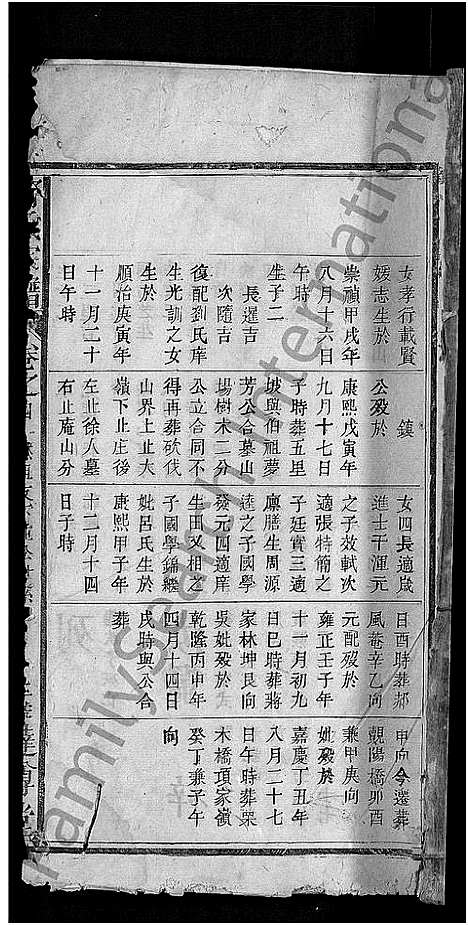 女孝行載賢
媛志生於
崇禎甲戌年
八月十六日
午時
生子二
長遲吉
次隨吉
復配劉氏庠
生光訓之女
生於
順治庚寅年
十一月二十
日午時
鎮
公歿於
康熙戊寅年
九月十七日
子時葬五里
坡與伯祖夢
芳公合墓山
場樹木二分
公立合同不
得再葬砍伐
山界上止大
嶺下止庄後
左止徐八墓
右止庵山分
女四長適歲
進士干運元
之子效軾次
適張特簡之
子廷實三適
廩膳生周源
達之子國學
發元四適庠
生田爻相之
子國學錦繼
妣呂氏生於
康熙甲子年
十二月十四
日子時
日酉時葬郝
風菴辛乙向
元配歿於
雍正壬子年
十一月初九
日巳時葬蔣
家林坤艮向
吳妣歿於
乾隆丙申年
四月十四日
戌時與公合
葬
甲向今遷葬
觀陽橋卯酉
兼甲庚向
妣歿於
嘉慶丁丑年
八月二十七
日午時葬栗
木橋項家嶺
癸丁兼子午
向
FamilySearch International